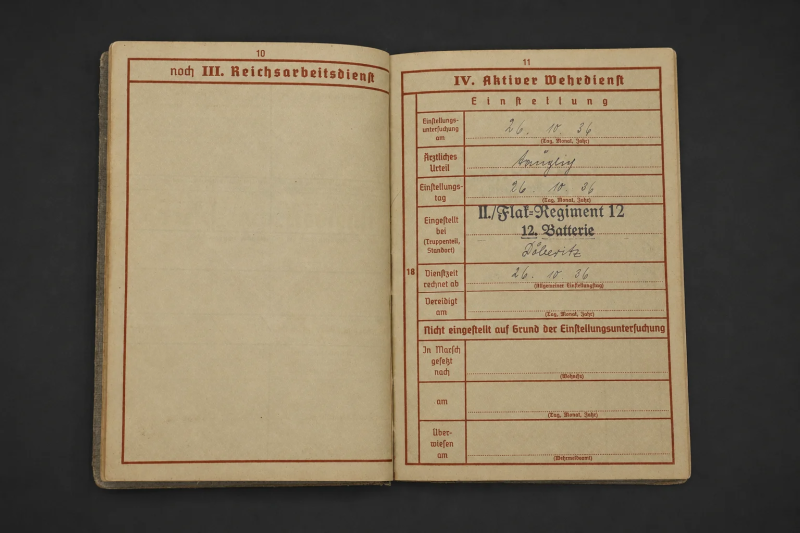 10
noch III. Reichsarbeitsdienst
11
IV. Aktiver Wehrdienst
Einstellung
Einstellungs-
untersuchung
am
26. 10. 36
(Tag, Monat, Jahr)
Ärztliches
Urteil
tauglich
Einstellungs-
tag
26. 10. 36
(Tag, Monat, Jahr)
Eingestellt
bei
(Truppenteil,
Standort)
II./Flak-Regiment 12
12. Batterie
Döberitz
18
Dienstzeit
rechnet ab
26. 10. 36
(Allgemeiner Einstellungstag)
Vereidigt
am
(Tag, Monat, Jahr)
Nicht eingestellt auf Grund der Einstellungsuntersuchung
In Marsch
gesetzt
nach
(Wohnsitz)
am
(Tag, Monat, Jahr)
Über-
wiesen
am
(Wehrmeldeamt)